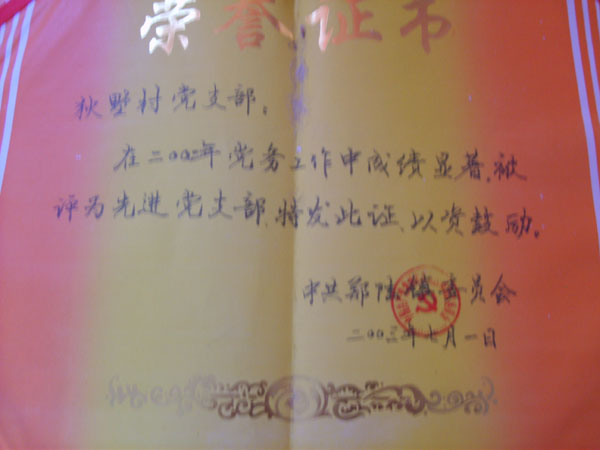 荣誉证书
狄墅村党支部:
在二00二年党务工作中成绩显著,被
评为先进党支部,特发此证,以资鼓励。
中共郑陆镇委员会
二00三年七月一日